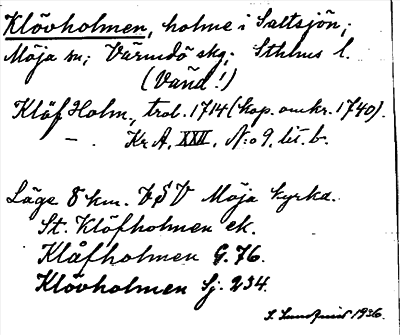 Klövholmen, holme i Saltsjön;
Möja sn; Värmdö skg; Sthlms l.
(Vänd!)
Klåf Holm, trol. 1714 (kop. omkr. 1740).
— . Kr A, XXII, N:o 9, lit. b.
Läge 8 km. VSV Möja kyrka.
St. Klöfholmen ek.
Klåfholmen G. 76.
Klövholmen Sj. 234.
S. 1936.